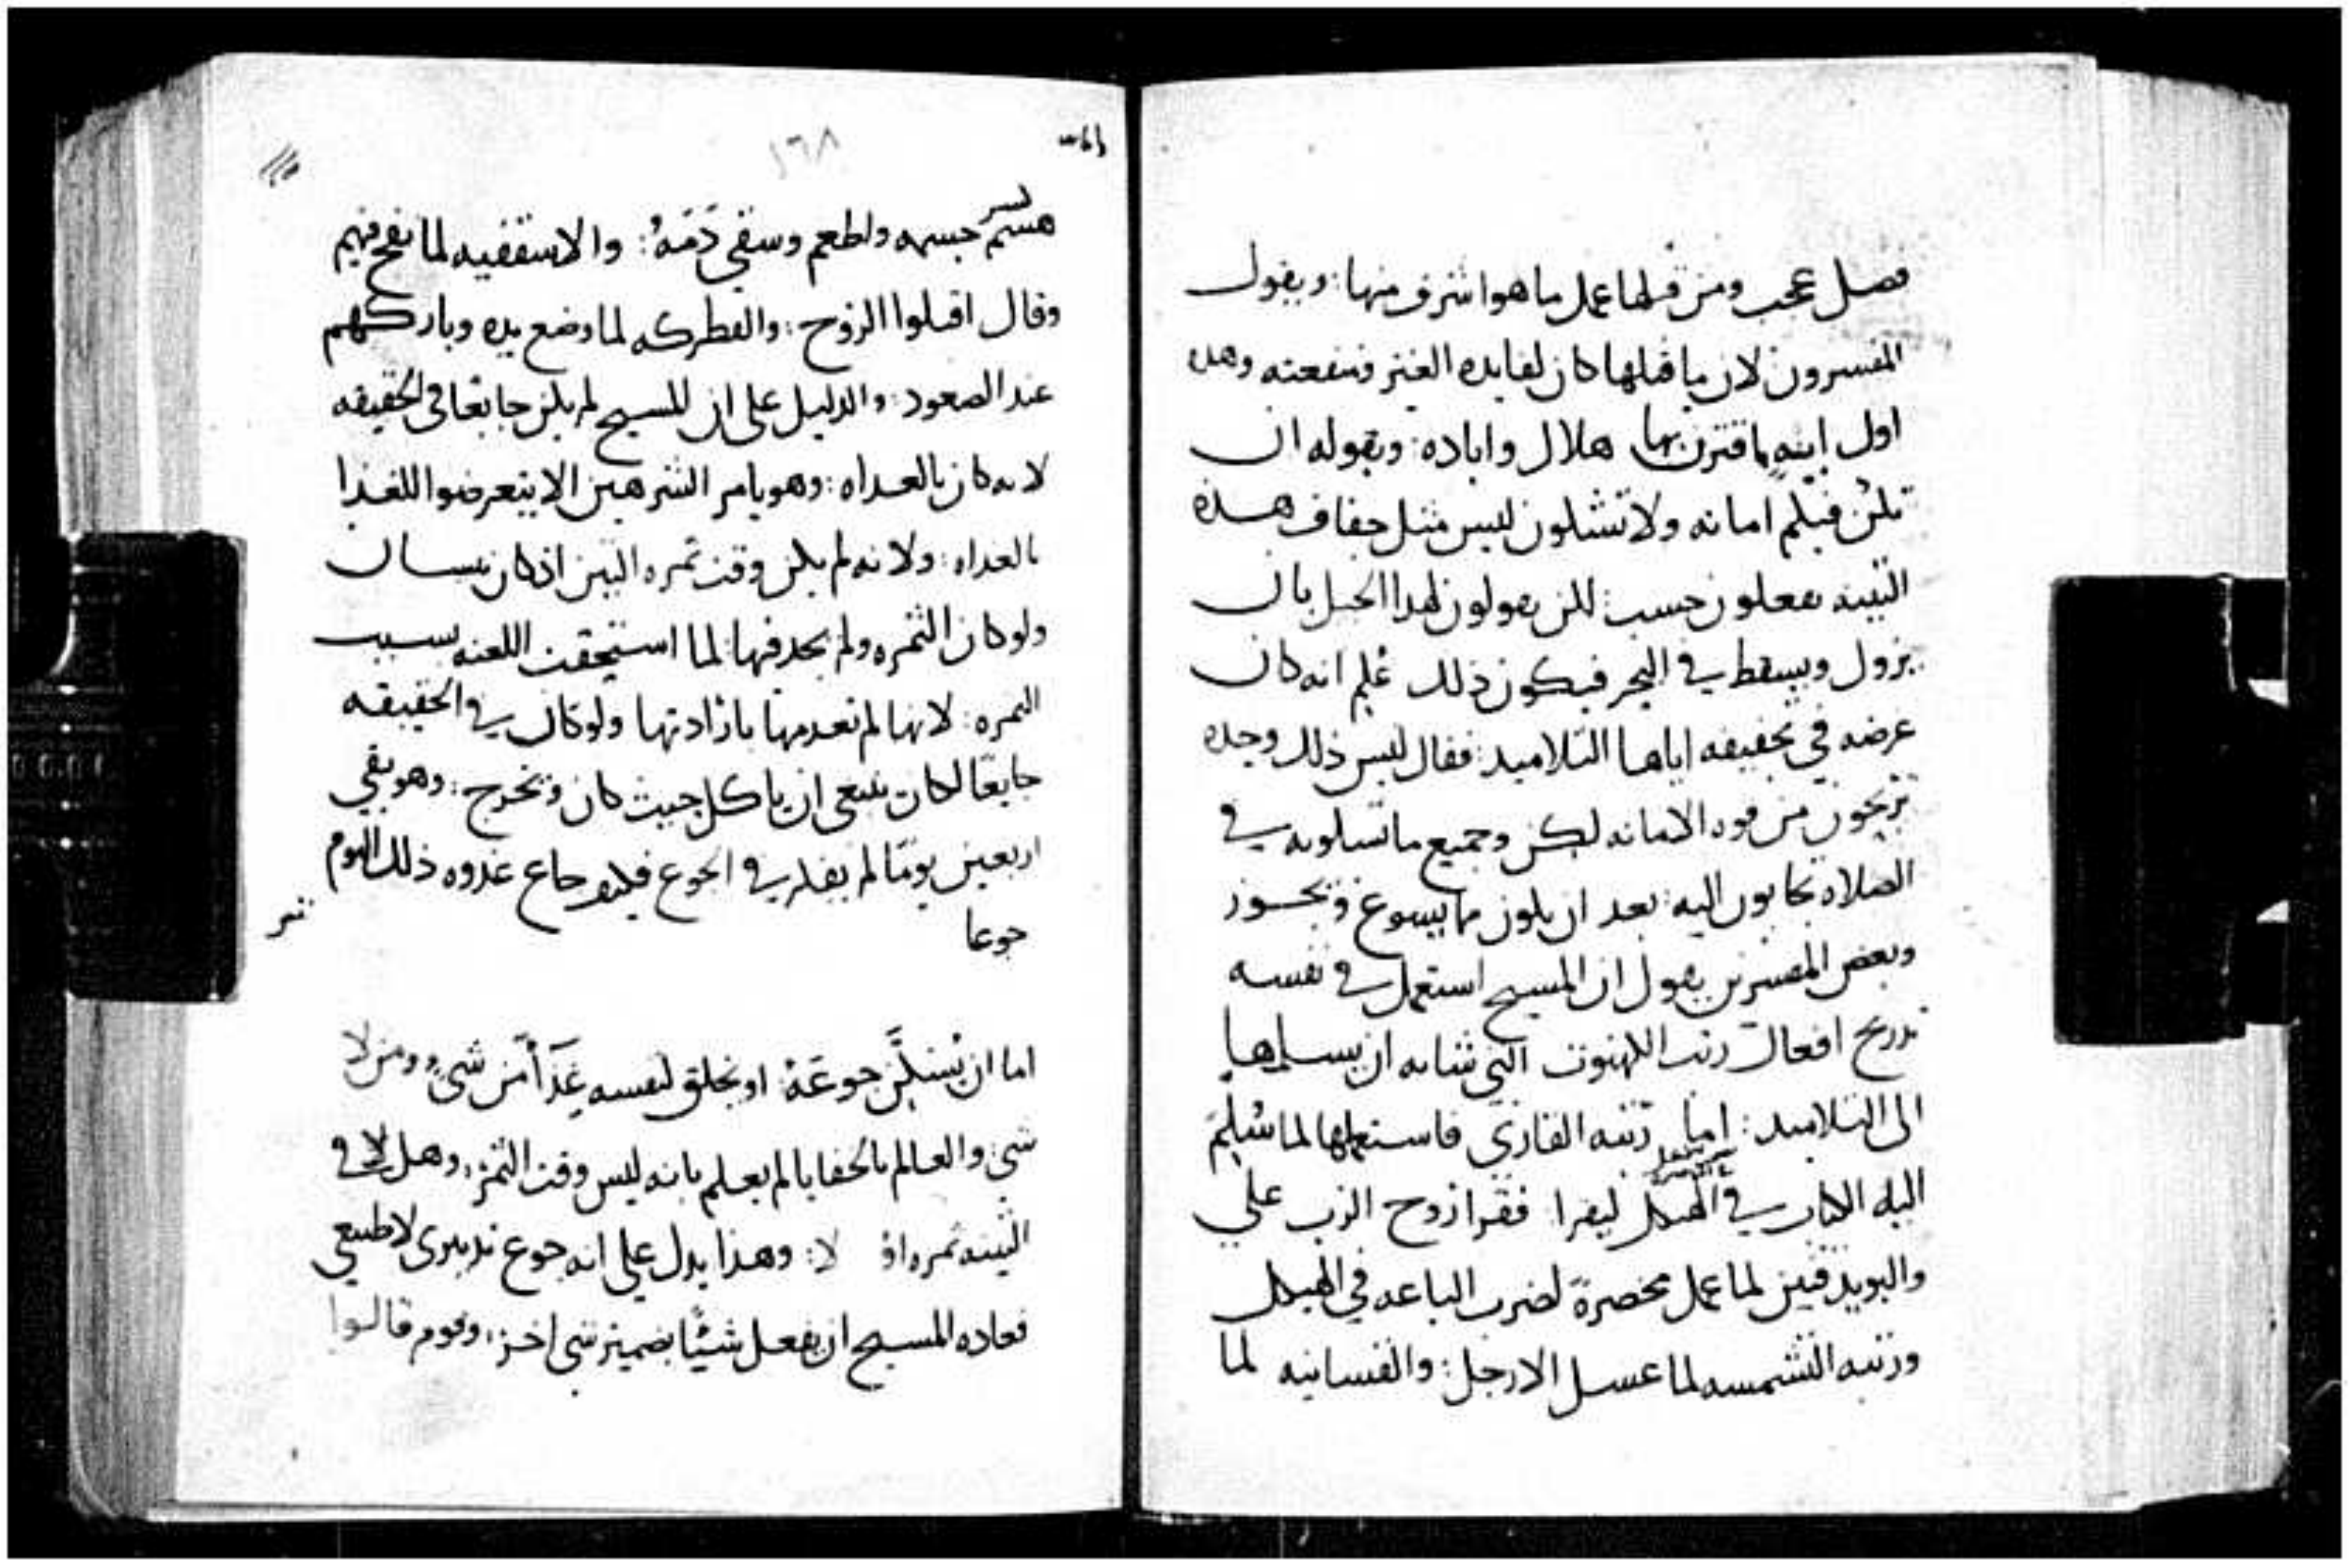 فصل عجب ومن قبلها عمل ما هو اشرف منها: ويقول
المفسرون لان ما قبلها كان لفايده الغير ومنفعته وهذه
اول ايه ما اقترن بها هلال واباده: وبقوله ان
تكن فيكم امانه ولا تشكون ليس مثل جفاف هذه
التينه تفعلون حسب: لكن تقولون لهذا الجبل بان
يزول ويسقط في البحر فيكون ذلك علم انه كان
غرضه في تحقيقه اياها التلاميد: فقال ليس ذلك وحده
تربحون من قوه الامانه لكن وجميع ما تسلونه في
الصلاه تجابون اليه: بعد ان يكون مما يسوغ ويجوز
وبعض المفسرين يقول ان المسيح استعمل في نفسه
تدريج افعال رتب الكهنوت التي شانه ان يسلمها
الى التلاميد: اما رتبه القاري فاستعملها لما سُلِّمَ
اليه الكتاب في الهيكل ليقرا: فقرا روح الرب علي
والبويدقين لما عمل مخصرةً لضرب الباعه في الهيكل
ورتبه الشمسه لما غسل الارجل: والقسانيه لما
١٦٨
جسمه واطعم وسقي دَمَهُ: والاسقفيه لما نفخ فيهم
وقال اقبلوا الروح: والفطركه لما وضع يده وباركهم
عند الصعود: والدليل على ان المسيح لم يكن جايعًا في الحقيقه
لانه كان بالغداه: وهو يامر الشرهين الا يتعرضوا للغذا
بالغداه: ولانه لم يكن وقت ثمره التين اذ كان نيسان
ولو كان الثمره ولم يجد فيها لما استحقت اللعنه بسبب
الثمره: لانها لم تعدمها بارادتها ولو كان في الحقيقه
جايعًا لكان ينبغي ان ياكل حيث كان وتخرج: وهو بقي
اربعين يومًا لم يفكر في الجوع فكيف جاع غدوه ذلك اليوم
جوعا
اما ان يُسَكِّن جوعَهُ: او يخلق لنفسه غَدَاً من شي ومن لا
شي: والعالم بالخفايا لم يعلم بانه ليس وقت الثمر: وهل لا في
التينه ثمره او لا: وهذا يدل علي انه جوع تدبيرى لا طبيعي
فعاده المسيح ان يفعل شيئًا بضمير شي اخر: وقوم قالوا